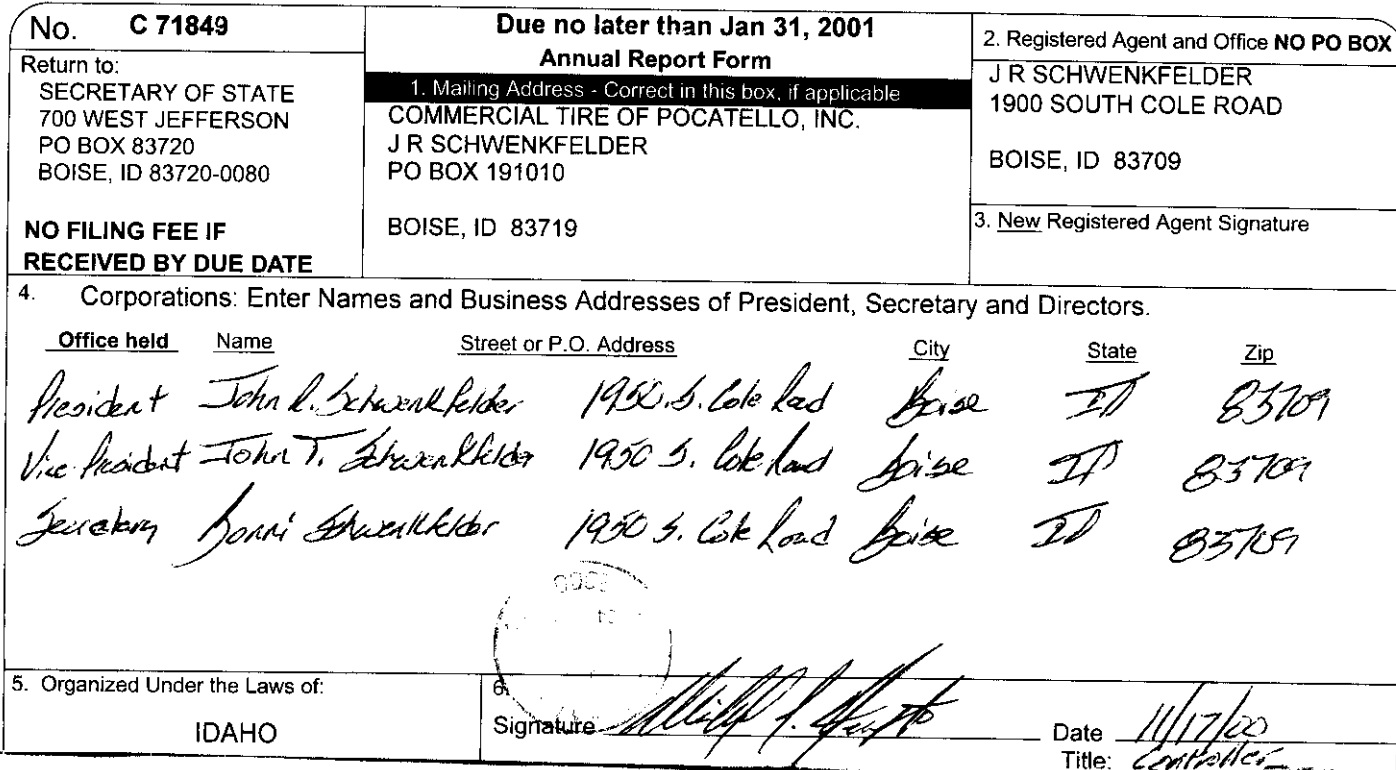 No. C 71849
Return to:
SECRETARY OF STATE
700 WEST JEFFERSON
PO BOX 83720
BOISE, ID 83720-0080
NO FILING FEE IF
RECEIVED BY DUE DATE
Due no later than Jan 31, 2001
Annual Report Form
1. Mailing Address - Correct in this box, if applicable
COMMERCIAL TIRE OF POCATELLO, INC.
J R SCHWENKFELDER
PO BOX 191010
BOISE, ID 83719
2. Registered Agent and Office NO PO BOX
J R SCHWENKFELDER
1900 SOUTH COLE ROAD
BOISE, ID 83709
3. New Registered Agent Signature
4. Corporations: Enter Names and Business Addresses of President, Secretary and Directors.
Office held Name Street or P.O. Address City State Zip
President John R. Schwenkfelder 1950 S. Cole Road Boise ID 83709
Vice President John T. Schwenkfelder 1950 S. Cole Road Boise ID 83709
Secretary Bonni Schwenkfelder 1950 S. Cole Road Boise ID 83709
5. Organized Under the Laws of:
IDAHO
6.
Signature
Date 11/17/00
Title: Controller